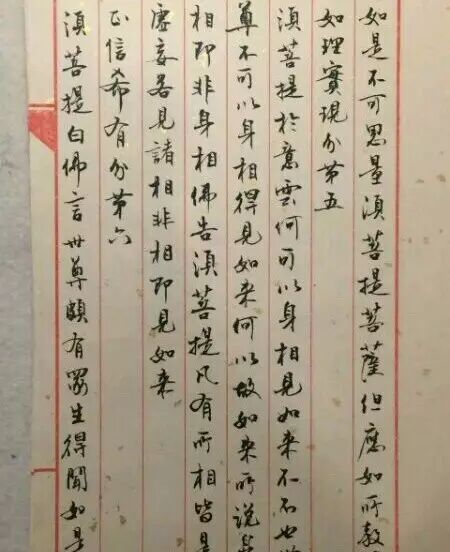 如是不可思量須菩提菩薩但應如所教
如理實現分第五
須菩提於意云何可以身相見如來不不也世
尊不可以身相得見如來何以故如來所說身
相即非身相佛告須菩提凡有所相皆是
虛妄若見諸相非相即見如來
正信希有分第六
須菩提白佛言世尊頗有眾生得聞如是